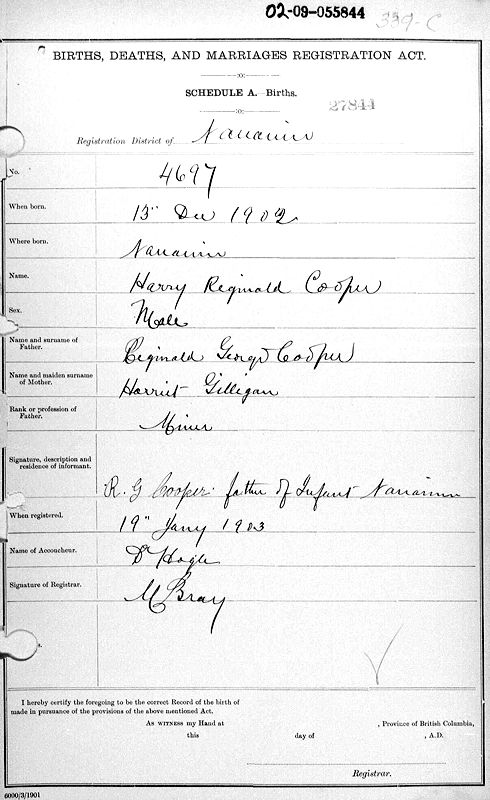 02-09-055844 339-C
BIRTHS, DEATHS, AND MARRIAGES REGISTRATION ACT.
SCHEDULE A.—Births.
27844
Registration District of Nanaimo
No. 4697
When born. 13" Dec 1902
Where born. Nanaimo
Name. Harry Reginald Cooper
Sex. Male
Name and surname of
Father. Reginald George Cooper
Name and maiden surname
of Mother. Harriet Gilligan
Rank or profession of
Father. Miner
Signature, description and
residence of informant. R. G Cooper father of Infant Nanaimo
When registered. 19" Jany 1903
Name of Accoucheur. Dr Hogle
Signature of Registrar. M Bray
s.
I hereby certify the foregoing to be the correct Record of the birth of
made in pursuance of the provisions of the above mentioned Act.
AS WITNESS my Hand at , Province of British Columbia,
this day of , A.D.
Registrar.
6000/3/1901